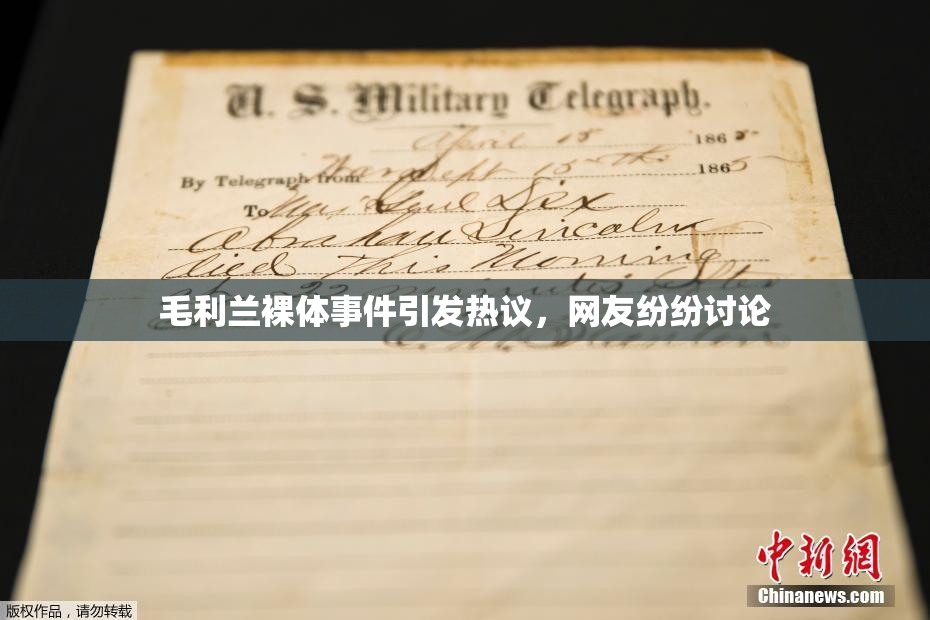 U. S. Military Telegraph.
April 15 1865
By Telegraph from War Dept 15th 1865
To Maj Genl Dix
Abraham Lincoln
died This Morning
at 22 minutes after
毛利兰裸体事件引发热议，网友纷纷讨论
中新网
Chinanews.com
版权作品，请勿转载